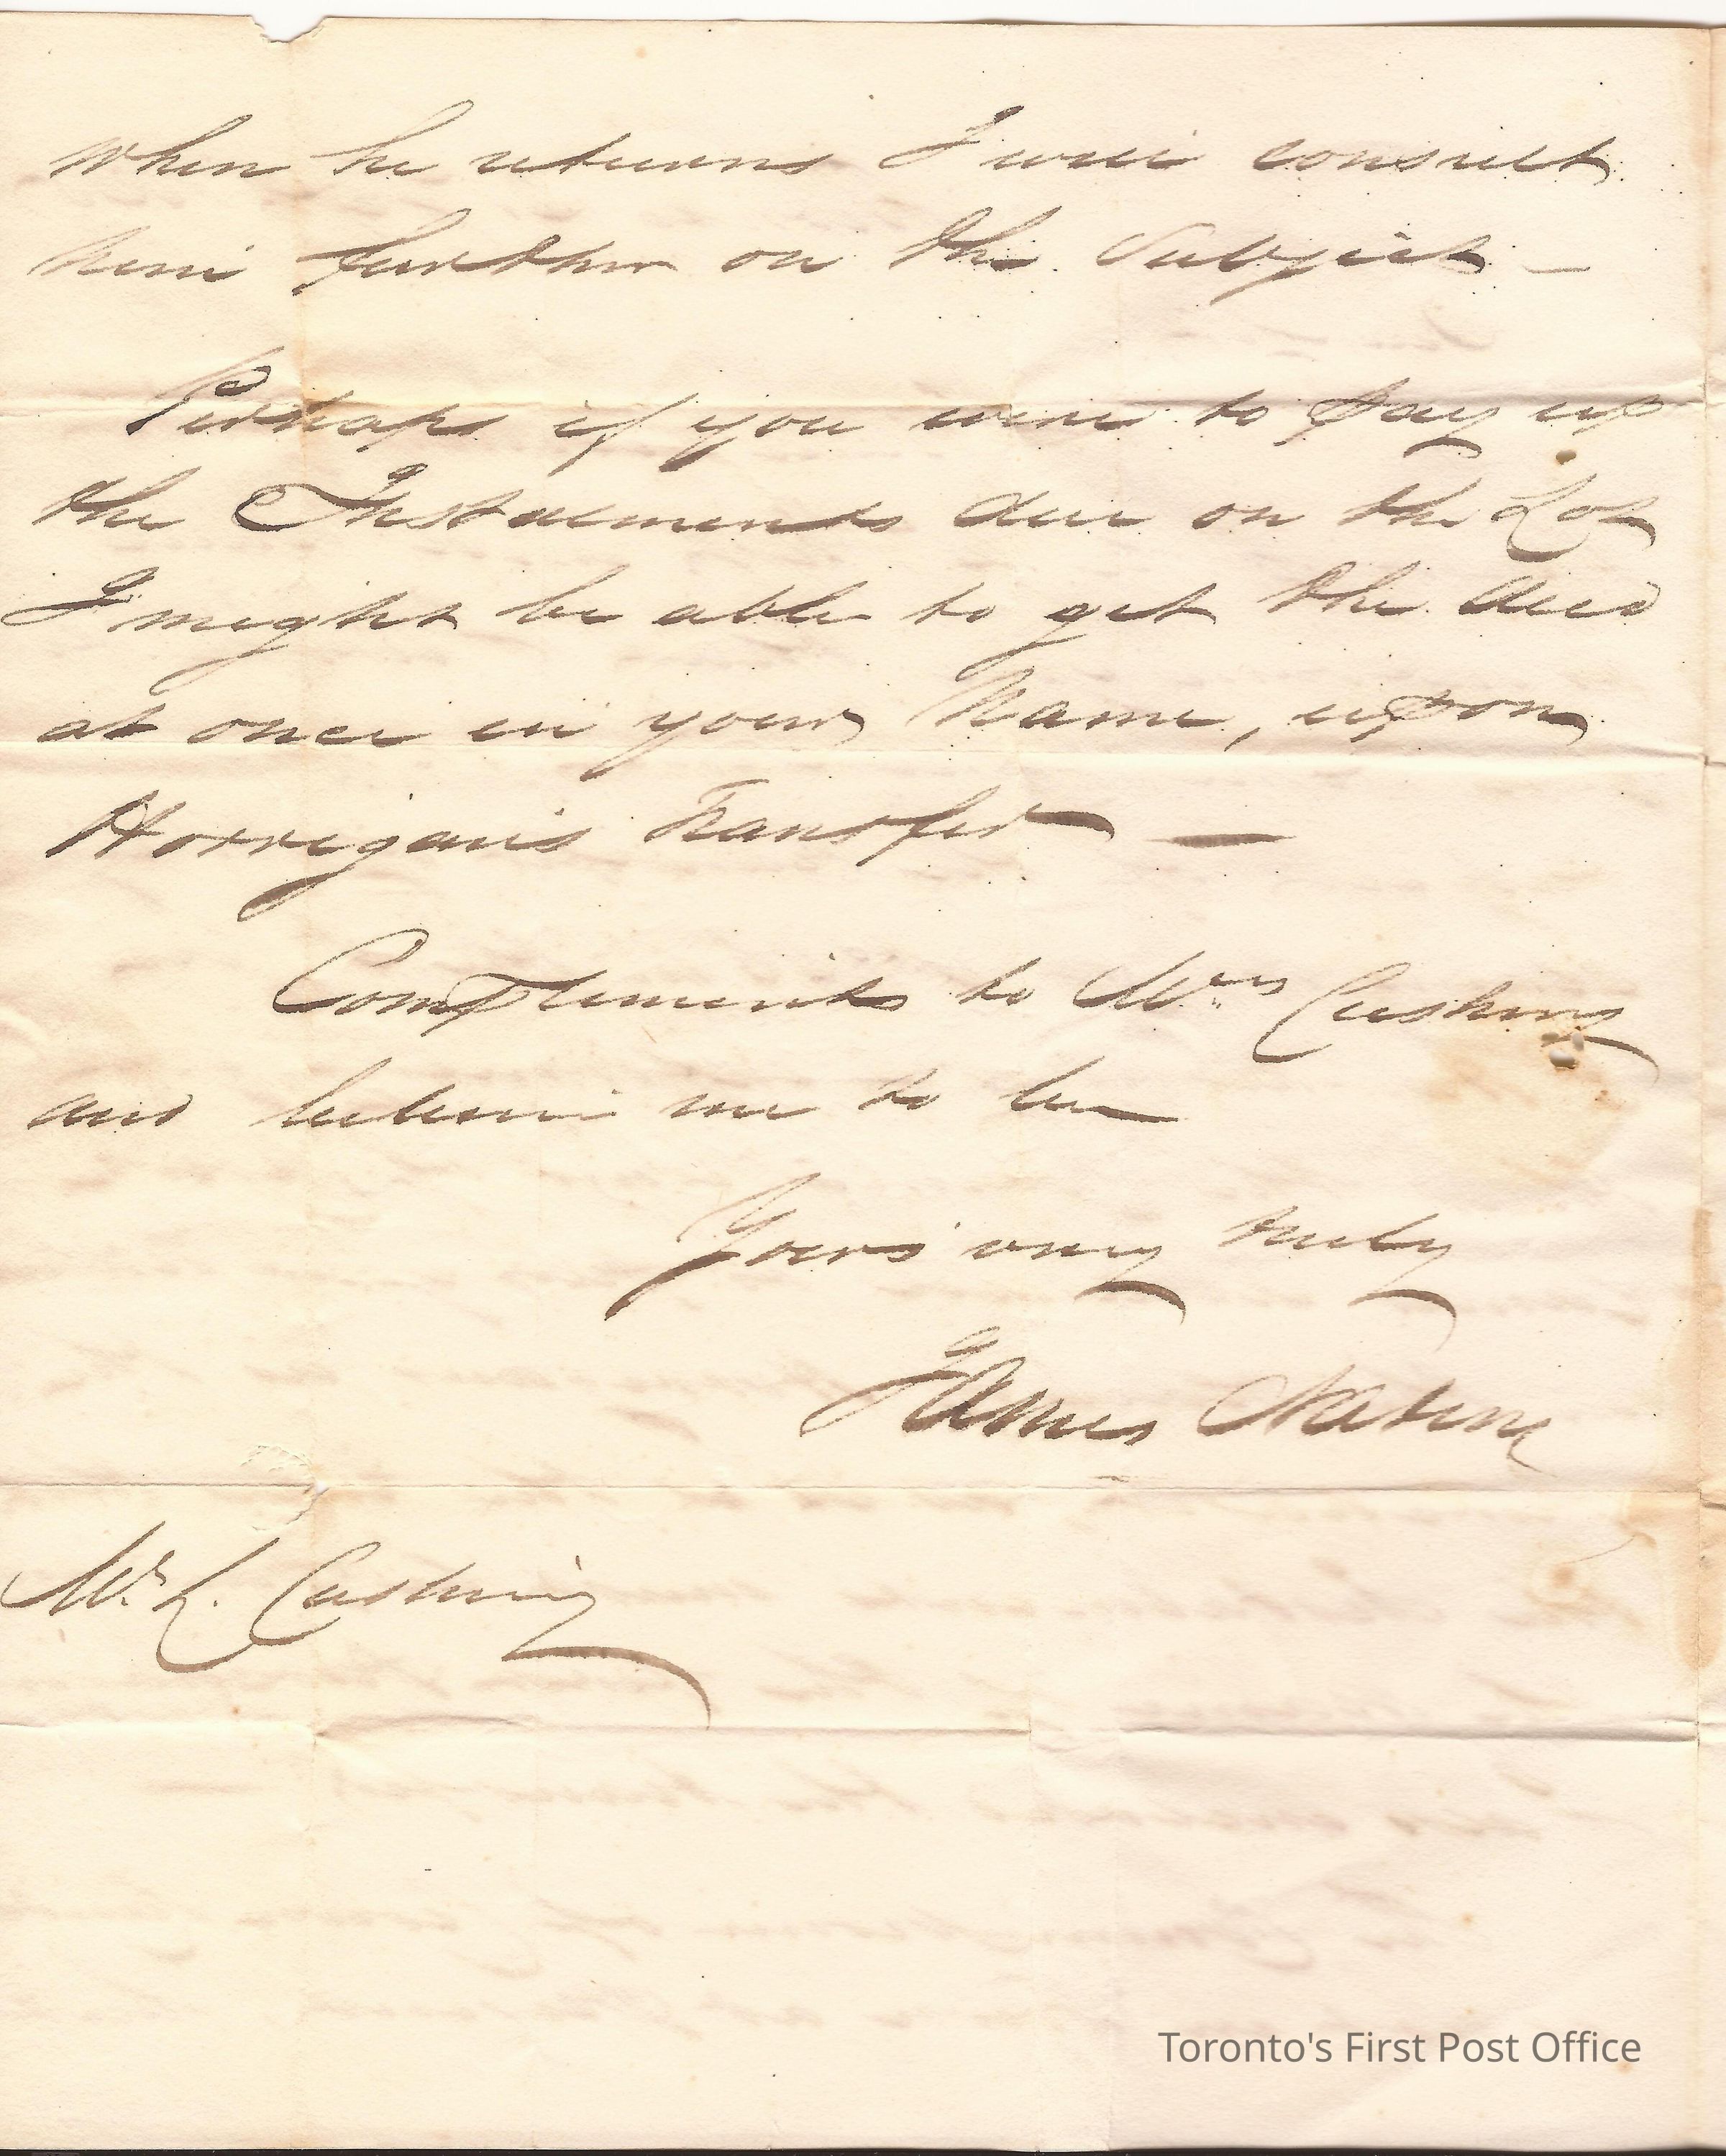 When he returns I will consult
him further on the Subject —
Perhaps if you were to pay up
the Instalments due on the Lot
I might be able to get the deed
at once in your Name, upon
Horrigan's Transfer —
Compliments to Mrs Cushing
and believe me to be
Yours very truly
James
Mr. L. Cushing
Toronto's First Post Office